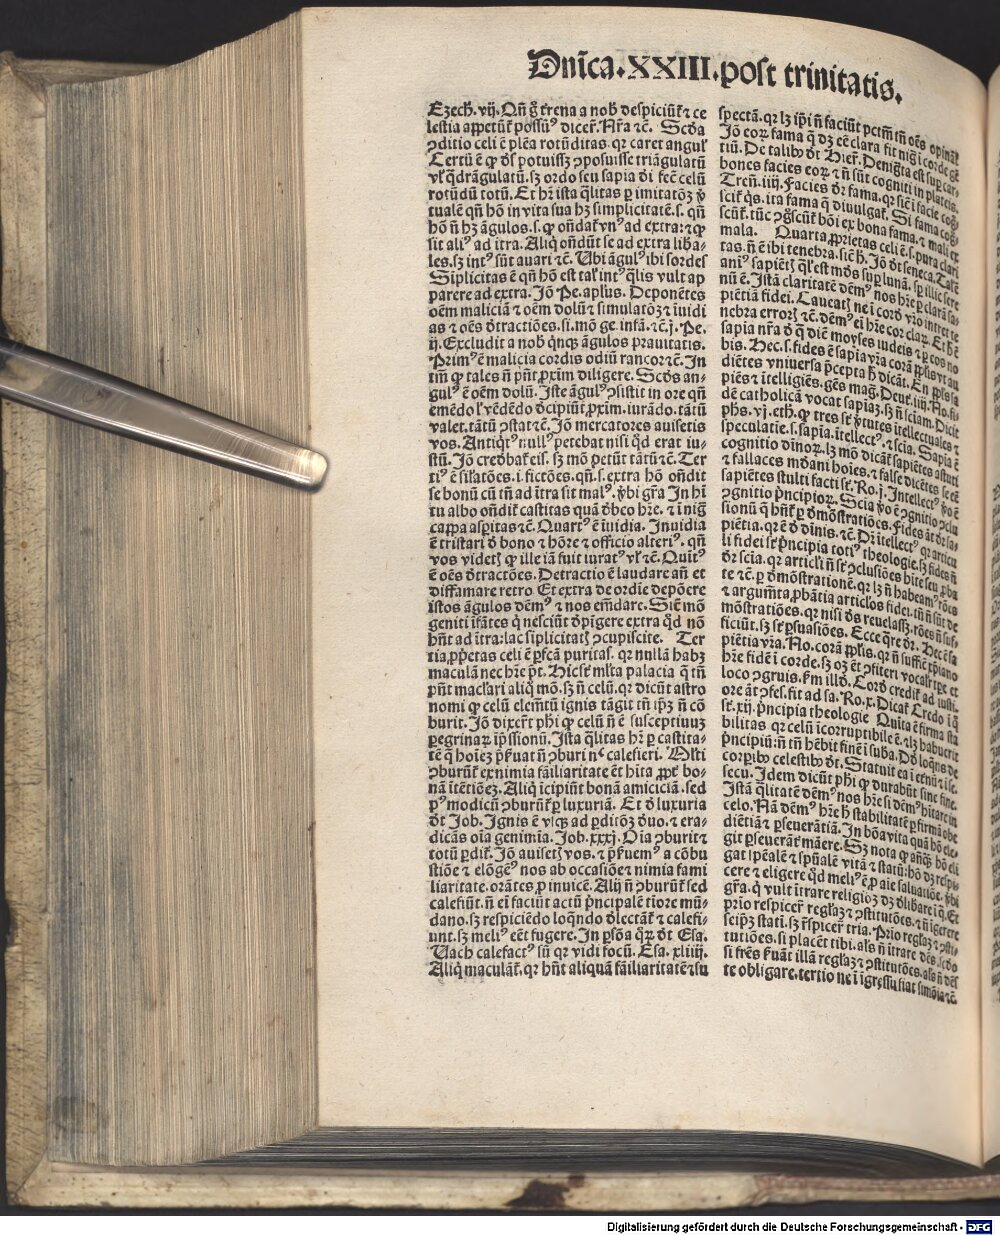 Dnĩca.XXIII.post trinitatis.
Ezech. vij. Qñ g̃ t̃rena a nob̃ despiciũt̃ ⁊ ce
lestia appetũt̃ possũꝰ dicer̃. Nr̃a ⁊c̃. Scďa
ꝯditio celi ẽ plẽa rotũditas. qr caret angul̃
Certũ ẽ ꝙ ďs potuissꝫ ꝯposuisse triãgulatũ
vl̃ q̃drãgulatũ. sꝫ ordo seu sapia ďi fec̃ celũ
rotũdũ totũ. Et hr̃ ista q̃litas ꝑ imitatõꝫ
tualẽ qñ hõ in vita sua hꝫ simplicitatẽ. s. qñ
hõ ñ hꝫ ãgulos. s. ꝙ oñdat̃ vnꝰ ad extra: ⁊ ꝙ
sit aliꝰ ad ĩtra. Aliq̃ oñdũt se ad extra libe-
les. sꝫ intꝰ sũt auari ⁊c̃. Ubi ãgulꝰ ibi sordes
Siplicitas ẽ qñ hõ est tal̃ intꝰ q̃lis vult ap
parere ad extra. Jõ Pe. aplus. Deponẽtes
oẽm maliciã ⁊ oẽm dolũ ⁊ simulatõꝫ ⁊ ĩuidi
as ⁊ oẽs ďtractiões. si. mõ ge. infã. ⁊c̃. j. Pe.
ij. Excludit a nob̃ q̃nqꝫ ãgulos prauitatis.
Primꝰ ẽ malicia cordis odiũ rancor ⁊c̃. In
tm̃ ꝙ tales ñ pñt ꝓxim̃ diligere. Scďs an-
gulꝰ ẽ oẽm dolũ. Iste ãgulꝰ ꝯsistit in ore qñ
emẽdo l̃ vẽdẽdo ďcipiũt ꝓxim̃. iurãdo. tãtũ
valet. tãtũ ꝯstat ⁊c̃. Jõ mercatores auisetis
vos. Antiq̃tꝰ nullꝰ petebat nisi q̃d erat iu-
stũ. Jõ credbat̃ eis. sꝫ mõ petũt tãtũ ⁊c̃. Ter
tiꝰ ẽ sil̃atões. i. fictões. qñ. s. extra hõ oñdit
se bonũ cũ tñ ad ĩtra sit malꝰ. ṽbi gr̃a In hĩ
tu albo oñdit̃ castitas quã ďbeo hr̃e. ⁊ ĩ nig̃
cappa asꝑitas ⁊c̃. Quartꝰ ẽ ĩuidia. Inuidia
ẽ tristari ď bono ⁊ hõre ⁊ officio alteriꝰ. qñ
vos videtꝭ ꝙ ille iã fuit iuratꝰ vl̃ ⁊c̃. Quĩtꝰ
ẽ oẽs ďtractões. Detractio ẽ laudare añ et
diffamare retro. Et extra de ordĩe depõere
istos ãgulos dẽmꝰ ⁊ nos em̃dare. Sic̃ mõ
geniti ĩfãtes q̃ nesciũt ďpigere extra q̃d nõ
hñt ad ĩtra: lac siplicitatꝭ ꝯcupiscite. Ter
tia ꝓp̃etas celi ẽ ꝑfc̃ã puritas. qr nullã habꝫ
maculã nec hr̃e pt̃. Hic st̃ ml̃ta palacia q̃ tñ
pñt macl̃ari aliq̃ mõ. sꝫ ñ celũ. qr dicũt astro
nomi ꝙ celũ elem̃tũ ignis tãgit tñ ip̃ꝫ ñ cõ
burit. Jõ dixer̃t phi ꝙ celũ ñ ẽ susceptiuuꝫ
ꝑegrinaꝝ ĩp̃ssionũ. Ista q̃litas hr̃ ꝑ castita-
tẽ q̃ hoieꝫ p̃s̃uat ñ ꝯburi nᶜ calefieri. Ml̃ti
ꝯburũt̃ ex nimia fãiliaritate ẽt hĩta ꝓpt̃ bo-
nã ĩtẽtiõeꝫ. Aliq̃ ĩcipiũt bonã amiciciã. sed
pꝰ modicũ ꝯburũt̃ ꝑ luxuriã. Et ď luxuria
ďt Job. Ignis ẽ vsqꝫ ad ꝑditõꝫ ďuo. ⁊ era-
dicãs oĩa genimĩa. Job. xxxj. Oĩa ꝯburit ⁊
totũ ꝑdit̃. Jõ auisetꝭ vos. ⁊ p̃s̃uemꝰ a cõbu
stiõe ⁊ elõgẽꝰ nos ab occasiõe ⁊ nimia fami
liaritate. orãtes ꝓ inuicẽ. Alij ñ ꝯburũt̃ sed
calefiũt. ñ eĩ faciũt actũ p̃ncipalẽ tiore mũ-
dano. sꝫ respiciẽdo loq̃ndo ďlectãt̃ ⁊ calefi-
unt. sꝫ meliꝰ eẽt fugere. In ꝑsõa q̃ꝝ ďt Esa.
Uach calefactꝰ sũ qr vidi focũ. Esa. xliiij.
Aliq̃ maculãt̃. qr hñt aliquã fãiliaritatẽ ⁊ su
spectã. qr lꝫ ip̃i ñ faciũt pctm̃ tñ oẽs opinãt̃
Jõ eoꝝ fama q̃ ďꝫ eẽ clara fit nig̃ ĩ corde gẽ
tiũ. De talibꝰ ďt Hier̃. Denig̃ta est suꝑ car-
bones facies eoꝝ ⁊ ñ sũt cogniti in plateis.
Tren̄. iiij. Facies ďr fama. qr sic̃ ĩ facie cog̃
scit̃ q̃s. ita fama q̃ diuulgat̃. Si fama cog̃
scũt̃. tũc ꝯg̃scũt̃ bõi ex bona fama. ⁊ mali ex
mala. Quarta ꝓprietas celi ẽ. s. pura clari
tas. ñ ẽ ibi tenebra. sic̃ h̃. Jõ ďt seneca. Talẽ
aniꝰ sapiẽtꝭ q̃l̃ est mďs suꝑ lunã. sꝑ illic sere
nũ ẽ. Istã claritatẽ dẽmꝰ nos hr̃e ꝑ clarã sa-
piẽtiã fidei. Caueatꝭ ne ĩ corď vr̃o intret te
nebra erroꝝ ⁊c̃. dẽmꝰ eĩ hr̃e cor claꝝ. Et h̃ ẽ
sapia nr̃a ď q̃ diẽm moyses iudeis ⁊ ꝑ cos no
bis. Hec. s. fides ẽ sapia vr̃a corã ppl̃is vt au
diẽtes vniuersa p̃cepta h̃ dicãt. En ppl̃s sa
piẽs ⁊ ĩtelligiẽs. gẽs mag̃. Deut̃. iiij. No. fi-
dẽ catholicã vocat sapiaꝫ. sꝫ ñ sciam. Dicit
phs. vj. eth. ꝙ tres st̃ ṽtutes ĩtellectuales ⁊
speculatie. s. sapĩa. ĩtellectꝰ. ⁊ scia. Sapĩa ẽ
cognitio dĩnoꝝ. lꝫ mõ dicãt̃ sapiẽtes astuti
⁊ fallaces mďani hoies. ⁊ false dicẽtes se eẽ
sapiẽtes stulti facti st̃. Ro. j. Intellectꝰ ṽo ẽ
ꝯgnitio p̃ncipioꝝ. Scia ṽo ẽ ꝯgnitio ꝯclu
sionũ q̃ hñt̃ ꝑ ďmõstratiões. Fides ãt ďr sa-
piẽtia. qr ẽ ď dĩnis. ⁊c̃. Dꝫ ĩtellectꝰ qr articu
li fidei st̃ p̃ncipia totiꝰ theologie. sꝫ fides ñ
ďr scia. qr articl̃i ñ st̃ ꝯclusiões hĩte seu ꝓba
te ⁊c̃. ꝑ ďmõstrationẽ. qr lꝫ ñ habeamꝰ rões
⁊ argum̃ta ꝓbãtia articl̃os fidei. tñ ñ sũt de
mõstratiões. qr nisi ďs reuelassꝫ. rões ñ suf-
ficiũt. sꝫ st̃ ꝑsuasiões. Ecce q̃re ďr. Hec ẽ sa
piẽtia vr̃a. No. corã ppl̃is. qr ñ suffic̃ xp̃iano
hr̃e fidẽ ĩ corde. sꝫ oꝫ ẽt ꝯfiteri vocal̃r tꝑe et
loco ꝯgruis. s̃m illď. Corď credit̃ ad iusti-
ore ãt ꝯfes. fit ad sa. Ro. x. Dicat̃ Credo ĩ q̃
st̃. xij. p̃ncipia theologie Quĩta ẽ firma sta
bilitas qr celũ ĩcorruptibile ẽ. ⁊ lꝫ habuerit
p̃ncipiũ: ñ tñ hẽbit finẽ ĩ suba. Dď loq̃ns de
corꝑibꝰ celestibꝰ ďt. Statuit ea ĩ et̃nũ ⁊ ĩ se.
secu. Idem dicũt phi ꝙ durabũt sine fine.
Istã q̃litatẽ dẽmꝰ nos hr̃e si dẽmꝰ hĩtare in
celo. Nã dẽmꝰ hr̃e h̃ stabilitatẽ ꝑ firmã obe
diẽtiã ⁊ ꝑseuerãtiã. In bõa vita quã hõ ele-
git ꝑseuerãt̃ mãere. Sꝫ nota ꝙ añqꝫ hõ eli
gat ĩpẽalẽ ⁊ spũalẽ vitã ⁊ statũ: hõ ďꝫ respi-
cere ⁊ eligere q̃d meliꝰ ẽ ꝓ aie saluatiõe. ṽbi
gr̃a. q̃ vult ĩtrare religioꝫ ďꝫ ďlibare ĩ q̃. Et
prio respicer̃ regl̃aꝫ ⁊ ꝯstitutões. ⁊ ñ igerere
seip̃ꝫ stati. sꝫ r̃spicer̃ tria. Prio regl̃aꝫ ⁊ ꝯsti-
tutiões. si placẽt tibi. als ñ ĩtrare dẽs. scďo
si fr̃es s̃uãt illã regl̃aꝫ ⁊ ꝯstitutões. als ñ dẽs
te obligare. tertio ne ĩ igressu fiat simõia ⁊c̃.
Digitalisierung gefördert durch die Deutsche Forschungsgemeinschaft - DFG